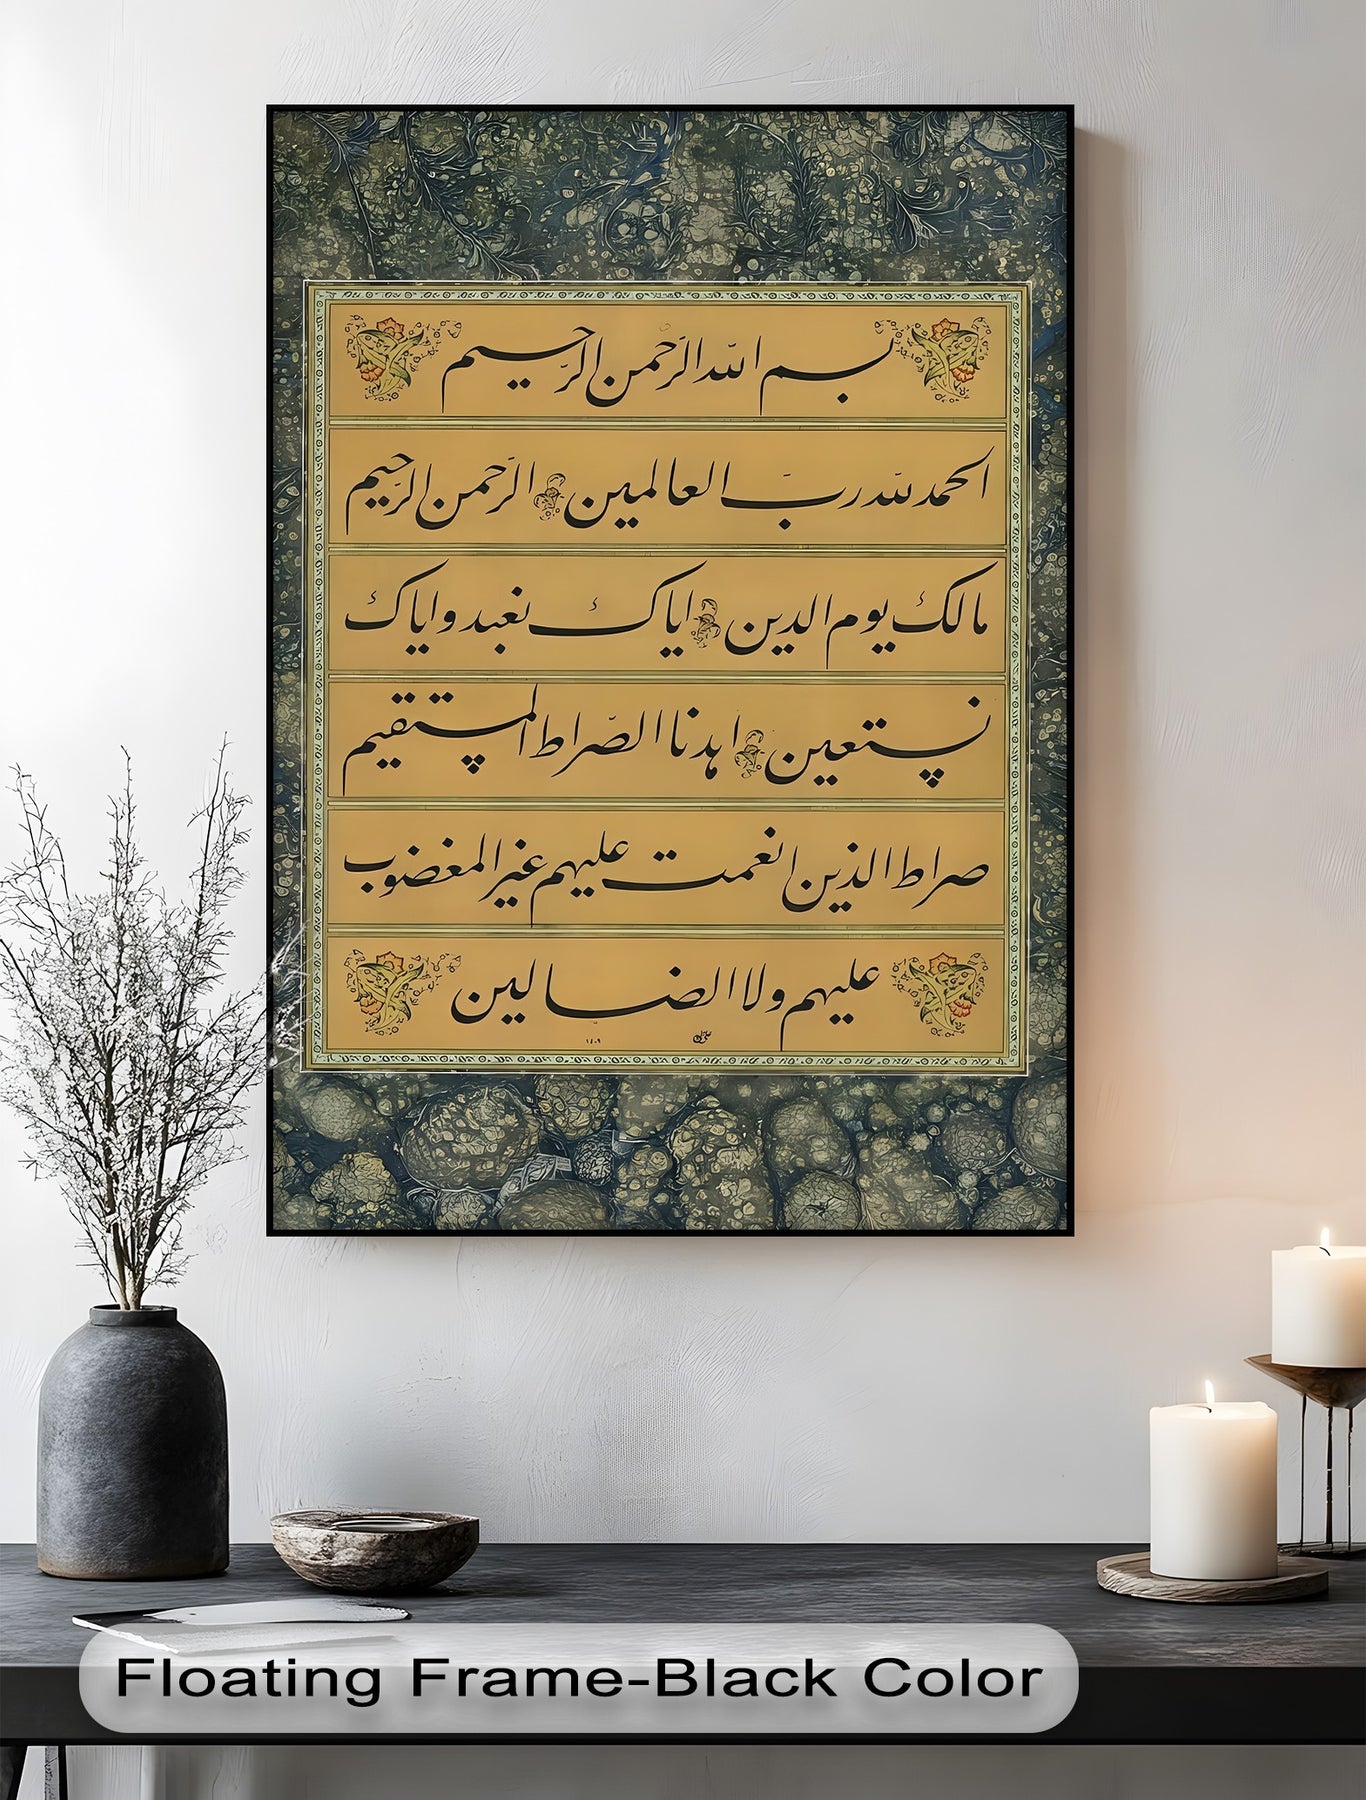 بسم الله الرحمن الرحيم
الحمد لله رب العالمين الرحمن الرحيم
مالك يوم الدين اياك نعبد واياك
نستعين اهدنا الصراط المستقيم
صراط الذين انعمت عليهم غير المغضوب
عليهم ولا الضالين
١٤٠٩
Floating Frame-Black Color